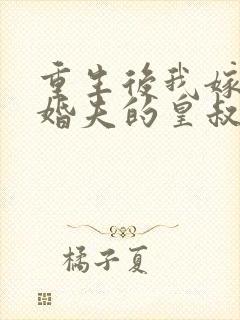 重生後我嫁
婚夫的皇叔
橘子夏